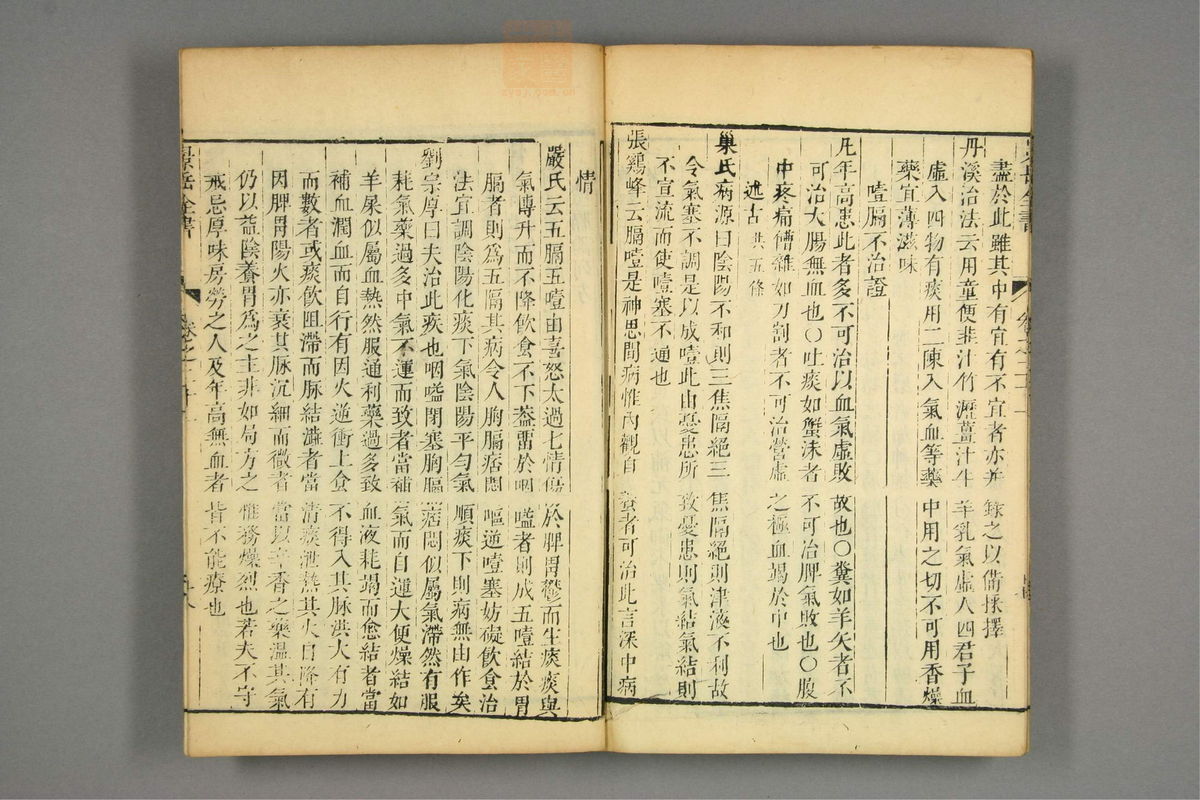 盡於此雖其中有宜有不宜者亦并錄之以備採擇
丹溪治法云用童便韭汁竹瀝薑汁牛羊乳氣虛入四君子血
虛入四物有痰用二陳入氣血等藥中用之切不可用香燥
藥宜薄滋味
噎膈不治證
凡年高患此者多不可治以血氣虛敗故也○糞如羊矢者不
可治大腸無血也○吐痰如蟹沫者不可治脾氣敗也○腹
中疼痛嘈雜如刀割者不可治營虛之極血竭於中也
述古共五條
巢氏病源曰陰陽不和則三焦隔絕三焦隔絕則津液不利故
令氣塞不調是以成噎此由憂患所致憂患則氣結氣結則
不宣流而使噎塞不通也
張鷄峰云膈噎是神思間病惟內觀自養者可治此言深中病
情
嚴氏云五膈五噎由喜怒太過七情傷於脾胃鬱而生痰痰與
氣傳升而不降飲食不下葢畱於咽嗌者則成五噎結於胃
膈者則爲五隔其病令人胸膈痞悶嘔逆噎塞妨礙飲食治
法宜調陰陽化痰下氣陰陽平勻氣順痰下則病無由作矣
劉宗厚曰夫治此疾也咽嗌閉塞胸膈痞悶似屬氣滯然有服
耗氣藥過多中氣不運而致者當補氣而自運大便燥結如
羊屎似屬血熱然服通利藥過多致血液耗竭而愈結者當
補血潤血而自行有因火逆衝上食不得入其脉洪大有力
而數者或痰飲阻滯而脉結澁者當清痰泄熱其火自降有
因脾胃陽火亦衰其脉沉細而微者當以辛香之藥溫其氣
仍以益陰養胃爲之主非如局方之惟務燥烈也若夫不守
戒忌厚味房勞之人及年高無血者皆不能療也
景岳全書
卷之二十一